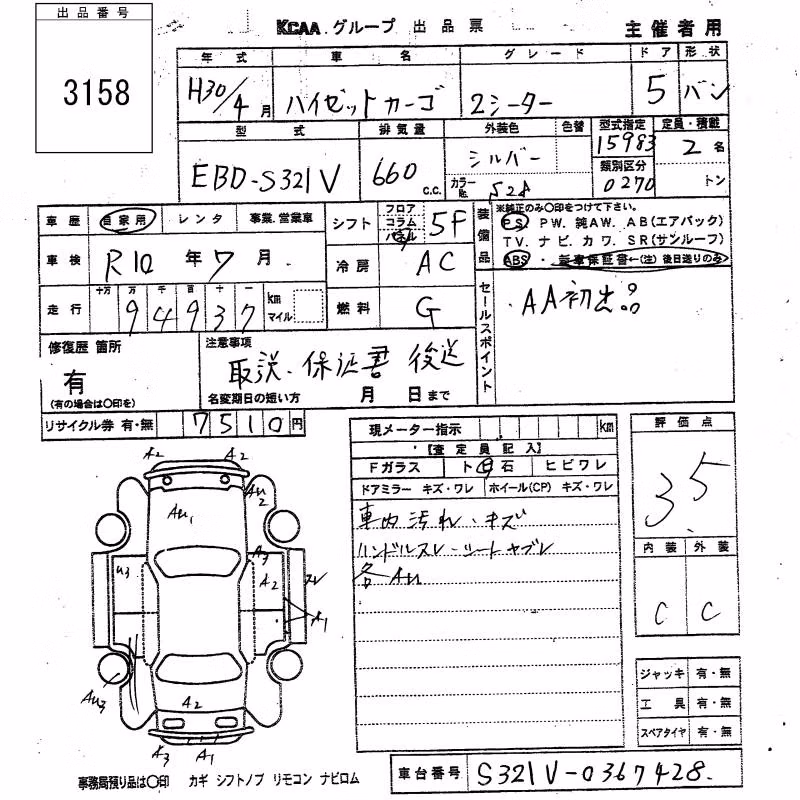 出品番号
3158
KCAA グループ 出品票 主催者用
年式 車名 グレード ドア 形状
H30/4月 ハイゼットカーゴ 2シーター 5 バン
型式 排気量 外装色 色替 型式指定 定員・積載
EBD-S321V 660 c.c. シルバー 15983 2名
カラーNo. S28 類別区分 0270 トン
車歴 自家用 レンタ 事業.営業車
シフト フロア コラム パネル 5F
装備品 ※純正のみ〇印をつけて下さい。
PS. PW. 純AW. AB(エアバック)
TV. ナビ. カワ. SR(サンルーフ)
ABS・新車保証書←(注)後日送りのみ
車検 R10年7月
冷房 AC
走行 十万 万 千 百 十 一
94937 km マイル
燃料 G
セールスポイント
AA初出
修復歴 箇所
有
(有の場合は〇印を)
注意事項
取説.保証書 後送
名変期日の短い方 月 日まで
リサイクル券 有・無 7510円
現メーター指示 km
【査定員記入】
Fガラス ト 石 ヒビワレ
ドアミラー キズ・ワレ ホイール(CP) キズ・ワレ
車内汚れ・キズ
ハンドルスレ・シートヤブレ
各AU
評価点
3.5
内装 外装
C C
A2 A2
AU2
AU1
A3
U3 A2 スレ
A1
AU3
A2
A3 A1
ジャッキ 有・無
工具 有・無
スペアタイヤ 有・無
事務局預り品は〇印 カギ シフトノブ リモコン ナビロム
車台番号 S321V-0367428.